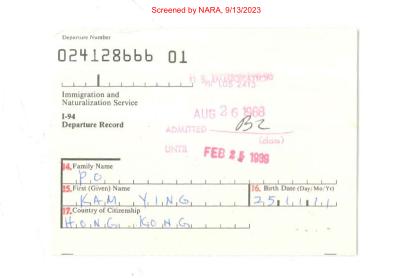 Screened by NARA, 9/13/2023
Departure Number
024128666 01
Immigration and
Naturalization Service
I-94
Departure Record
AUG 26 1988
ADMITTED B2
(class)
UNTIL FEB 25 1989
14. Family Name
P.O.
15. First (Given) Name
KAM YING
16. Birth Date (Day/Mo/Yr)
17. Country of Citizenship
HONG KONG